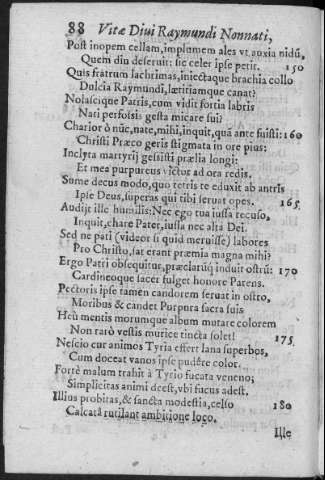 88 Vitæ Diui Raymundi Nonnati,
Post inopem cellam, implumem ales vt auxia nidũ,
Quem diu deseruit: sic celer ipse petit. 150
Quis fratrum lachrimas, iniectaque brachia collo
Dulcia Raymundi, lætitiamque canat?
Nolascique Patris, cum vidit fortia labris
Nati perfossis gesta micare sui?
Charior ô nũc, nate, mihi, inquit, quã ante fuisti: 160
Christi Præco geris stigmata in ore pius:
Inclyta martyrij gessisti prælia longi:
Et mea purpureus victor ad ora redis.
Sume decus modo, quo tetris te eduxit ab antris
Ipse Deus, superas qui tibi seruat opes. 165
Audijt ille humilis: Nec ego tua iussa recuso,
Inquit, chare Pater, iussa nec alta Dei.
Sed ne pati (videor si quid meruisse) labores
Pro Christo, sat erant præmia magna mihi?
Ergo Patri obsequitur, præclarũq; induit ostrũ: 170
Cardineoque sacer fulget honore Parens.
Pectoris ipse tamen candorem seruat in ostro,
Moribus & candet Purpura sacra suis
Heù mentis morumque album mutare colorem
Non rarò vestis murice tincta solet! 175
Nescio cur animos Tyria effert lana superbos,
Cum doceat vanos ipse pudêre color.
Fortè malum trahit à Tyrio fucata veneno;
Simplicitas animi deest, vbi fucus adest.
Illius probitas, & sancta modestia, celso 180
Calcatâ rutilant ambitione loco.
Ille